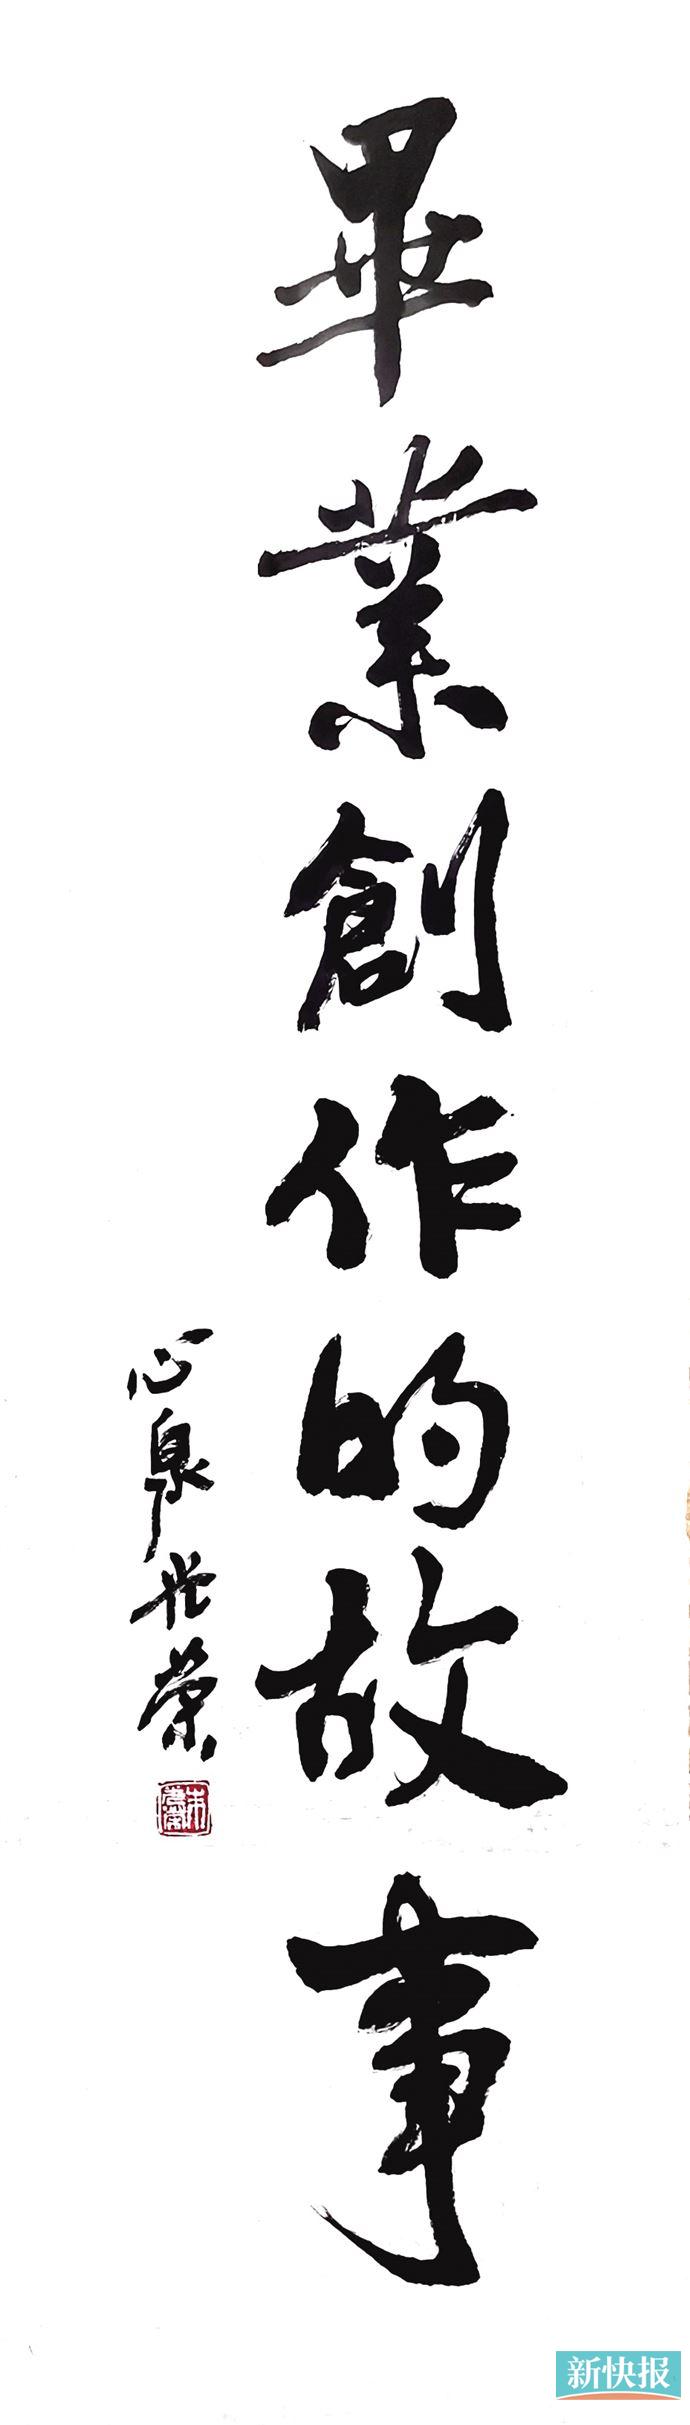 畢業創作的故事
心泉光榮
新快报